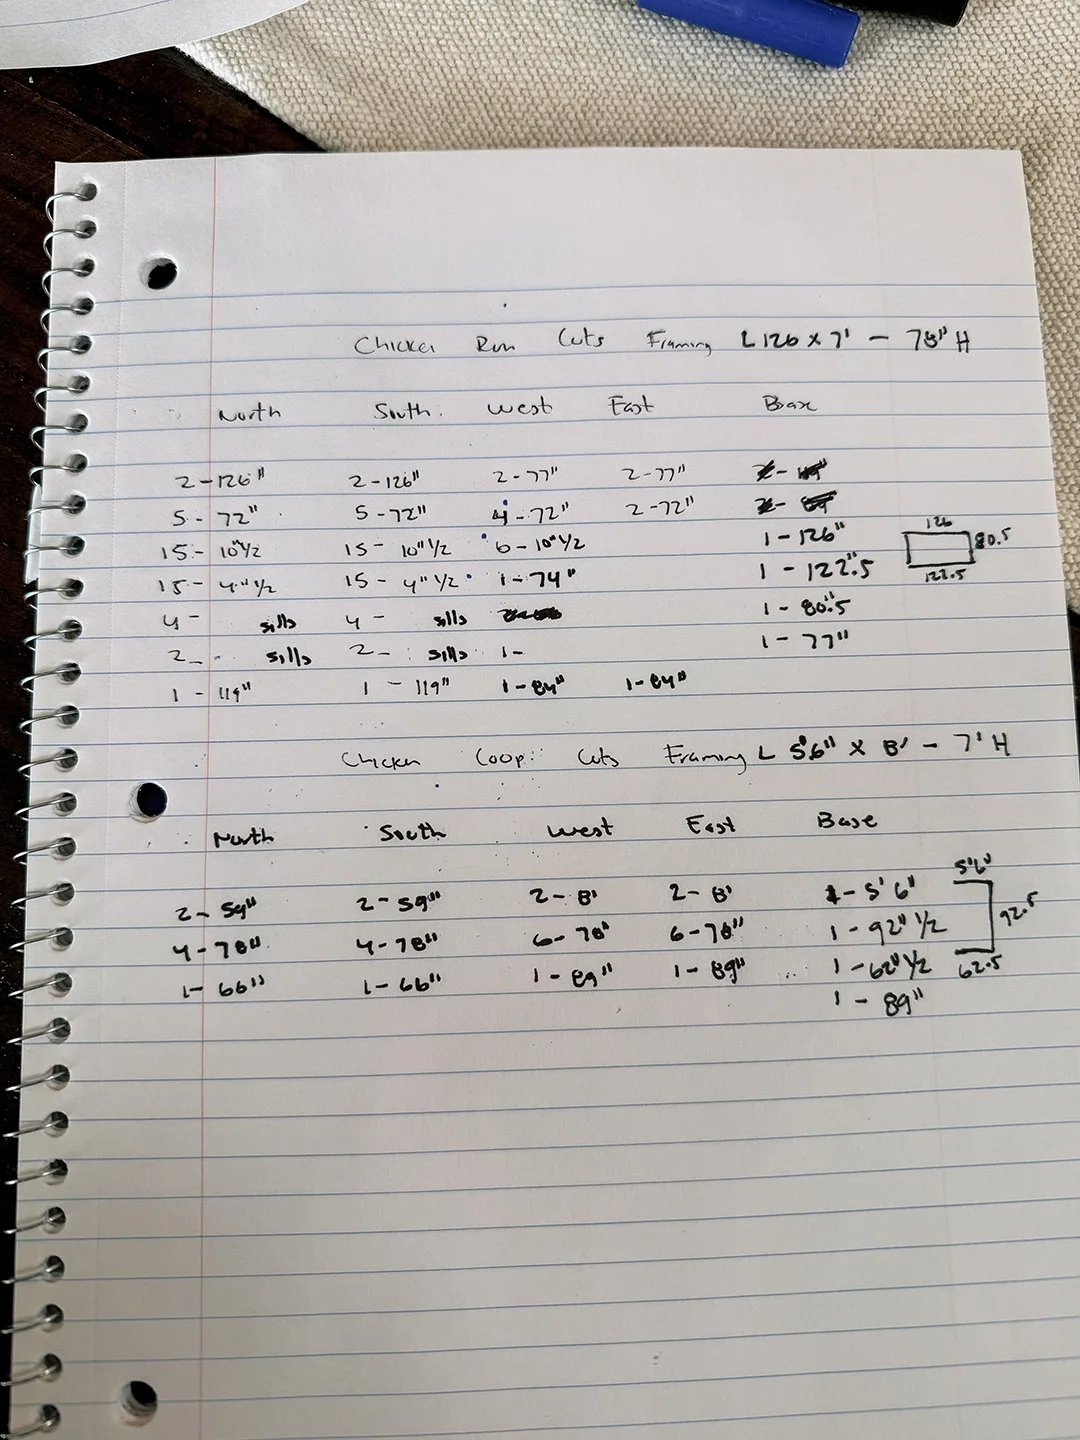 Chicken Run Cuts Framing L 126 x 7' - 78" H
North South West East Base
2-126" 2-126" 2-77" 2-77"
5-72" 5-72" 4-72" 2-72"
15-10" 1/2 15-10" 1/2 6-10" 1/2 1-126"
15-4" 1/2 15-4" 1/2 1-74" 1-122".5
4- sills 4- sills 1-80".5
2- sills 2- sills 1- 1-77"
1-119" 1-119" 1-84" 1-84"
126
80.5
122.5
Chicken Coop: Cuts Framing L 5'6" x 8' - 7' H
North South West East Base
2-59" 2-59" 2-8' 2-8' 1-5'6"
4-78" 4-78" 6-78" 6-78" 1-92" 1/2
1-66" 1-66" 1-89" 1-89" 1-62" 1/2
1-89"
5'6"
92.5
62.5